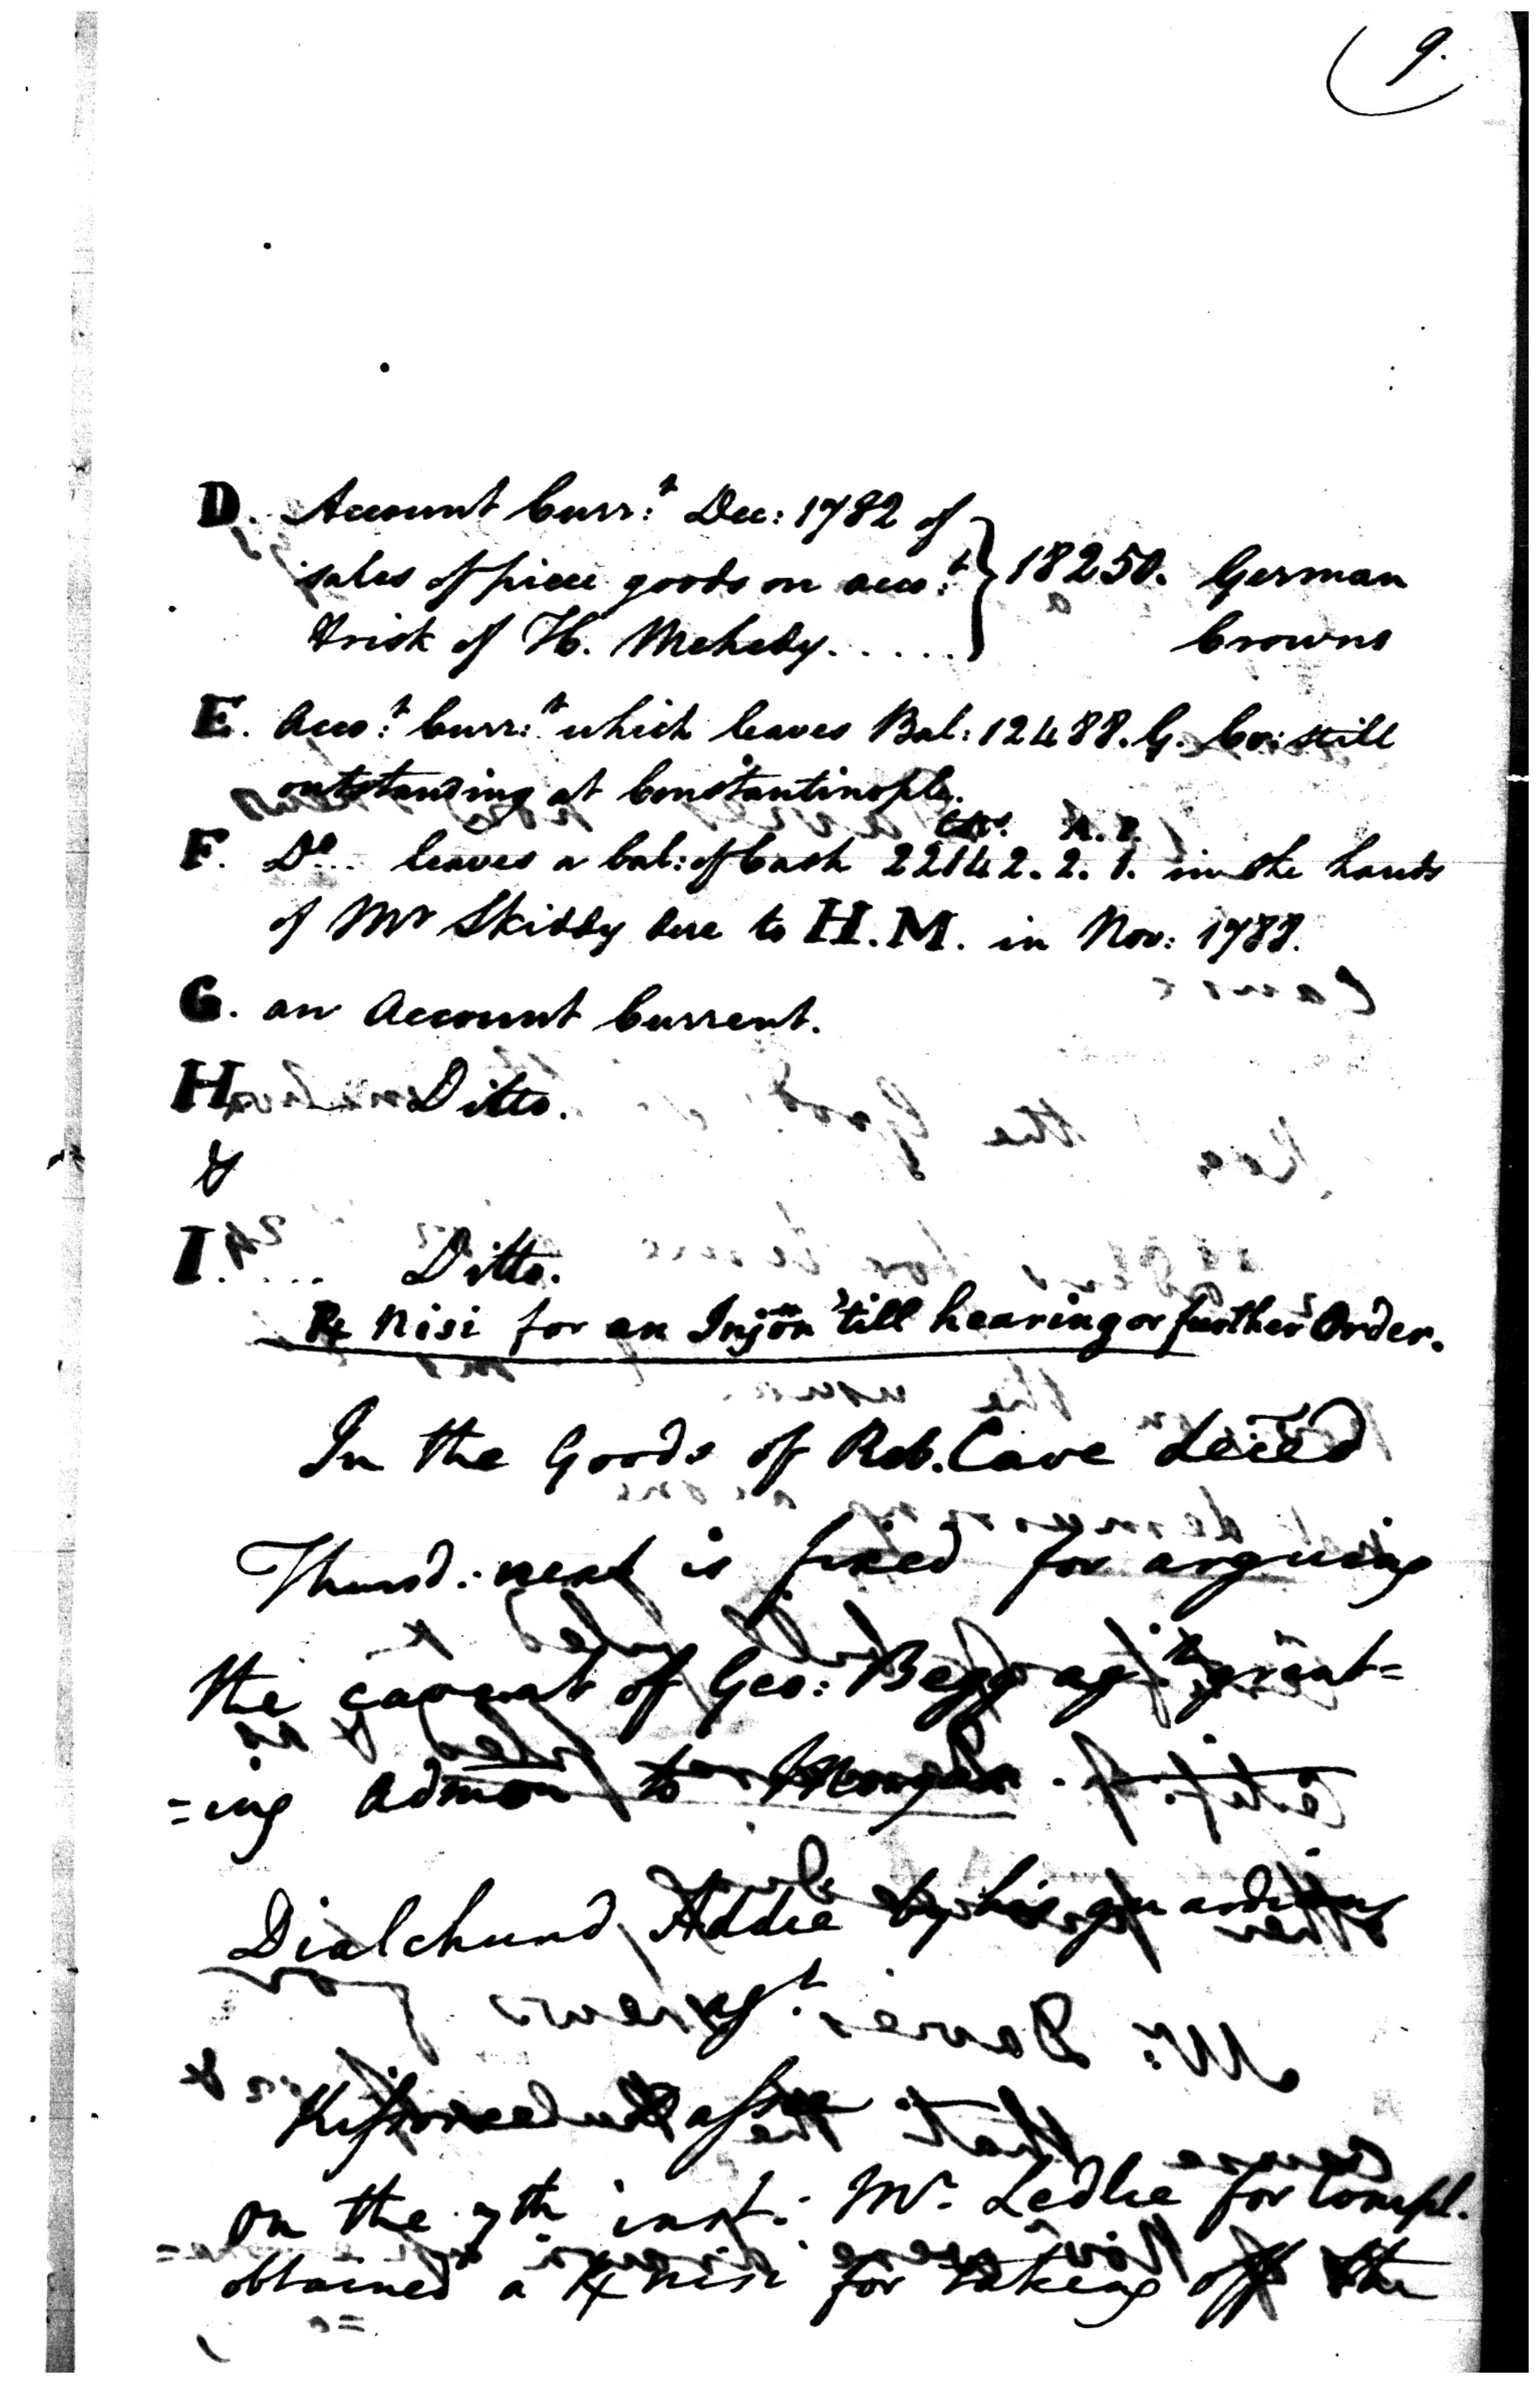 9.
D. Account Curr:t Dec: 1782 of
sales of piece goods on acco:t } 18250. German
& risk of H. Mehedy...... Crowns
E. Acco:t Curr:t which leaves Bal: 12488. G. Cr: still
outstanding at Constantinople.
F. Do... leaves a bal: of Cash 22142. 2. 1. in the hands
of Mr Skiddy due to H.M. in Nov: 1788.
G. an Account Current.
H. Ditto.
&
I. .... Ditto.
Rx Nisi for an Injōn 'till hearing or further Order.
In the Goods of Rob. Cave decēd
Thursd: next is fixed for arguing
the caveat of Geo: Begg ag:t grant=
=ing Admōn to
Dialchund Addie by his guardians
agt.
on the 7th inst: Mr. Ledlie for Compl.
obtained a Rx nisi for taking off the